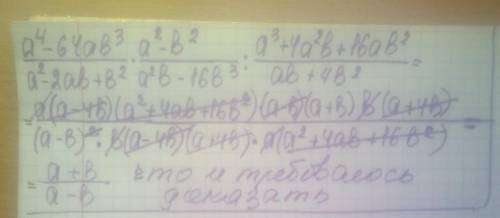 (a⁴-64ab³)/(a²-2ab+b²) · (a²-b²)/(a²b-16b³) : (a³+4a²b+16ab²)/(ab+4b²) =
= a(a-4b)(a²+4ab+16b²)(a-b)(a+b) b(a+4b)/((a-b)²· b(a-4b)(a+4b)· a(a²+4ab+16b²)) =
= (a+b)/(a-b) что и требовалось
доказать